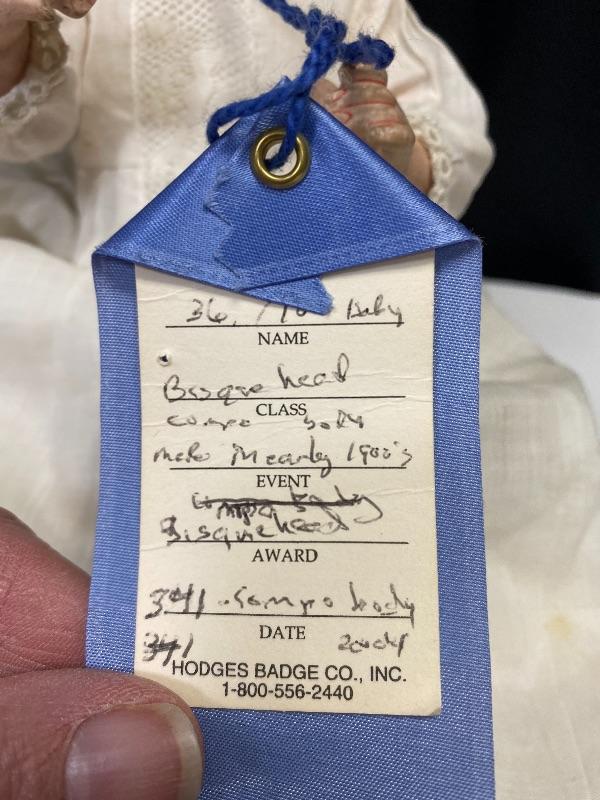 36, Baby
NAME
Bisque head
CLASS
compo body
made in early 1900's
EVENT
Bisque head
AWARD
341 compo body
DATE
341
HODGES BADGE CO., INC.
1-800-556-2440